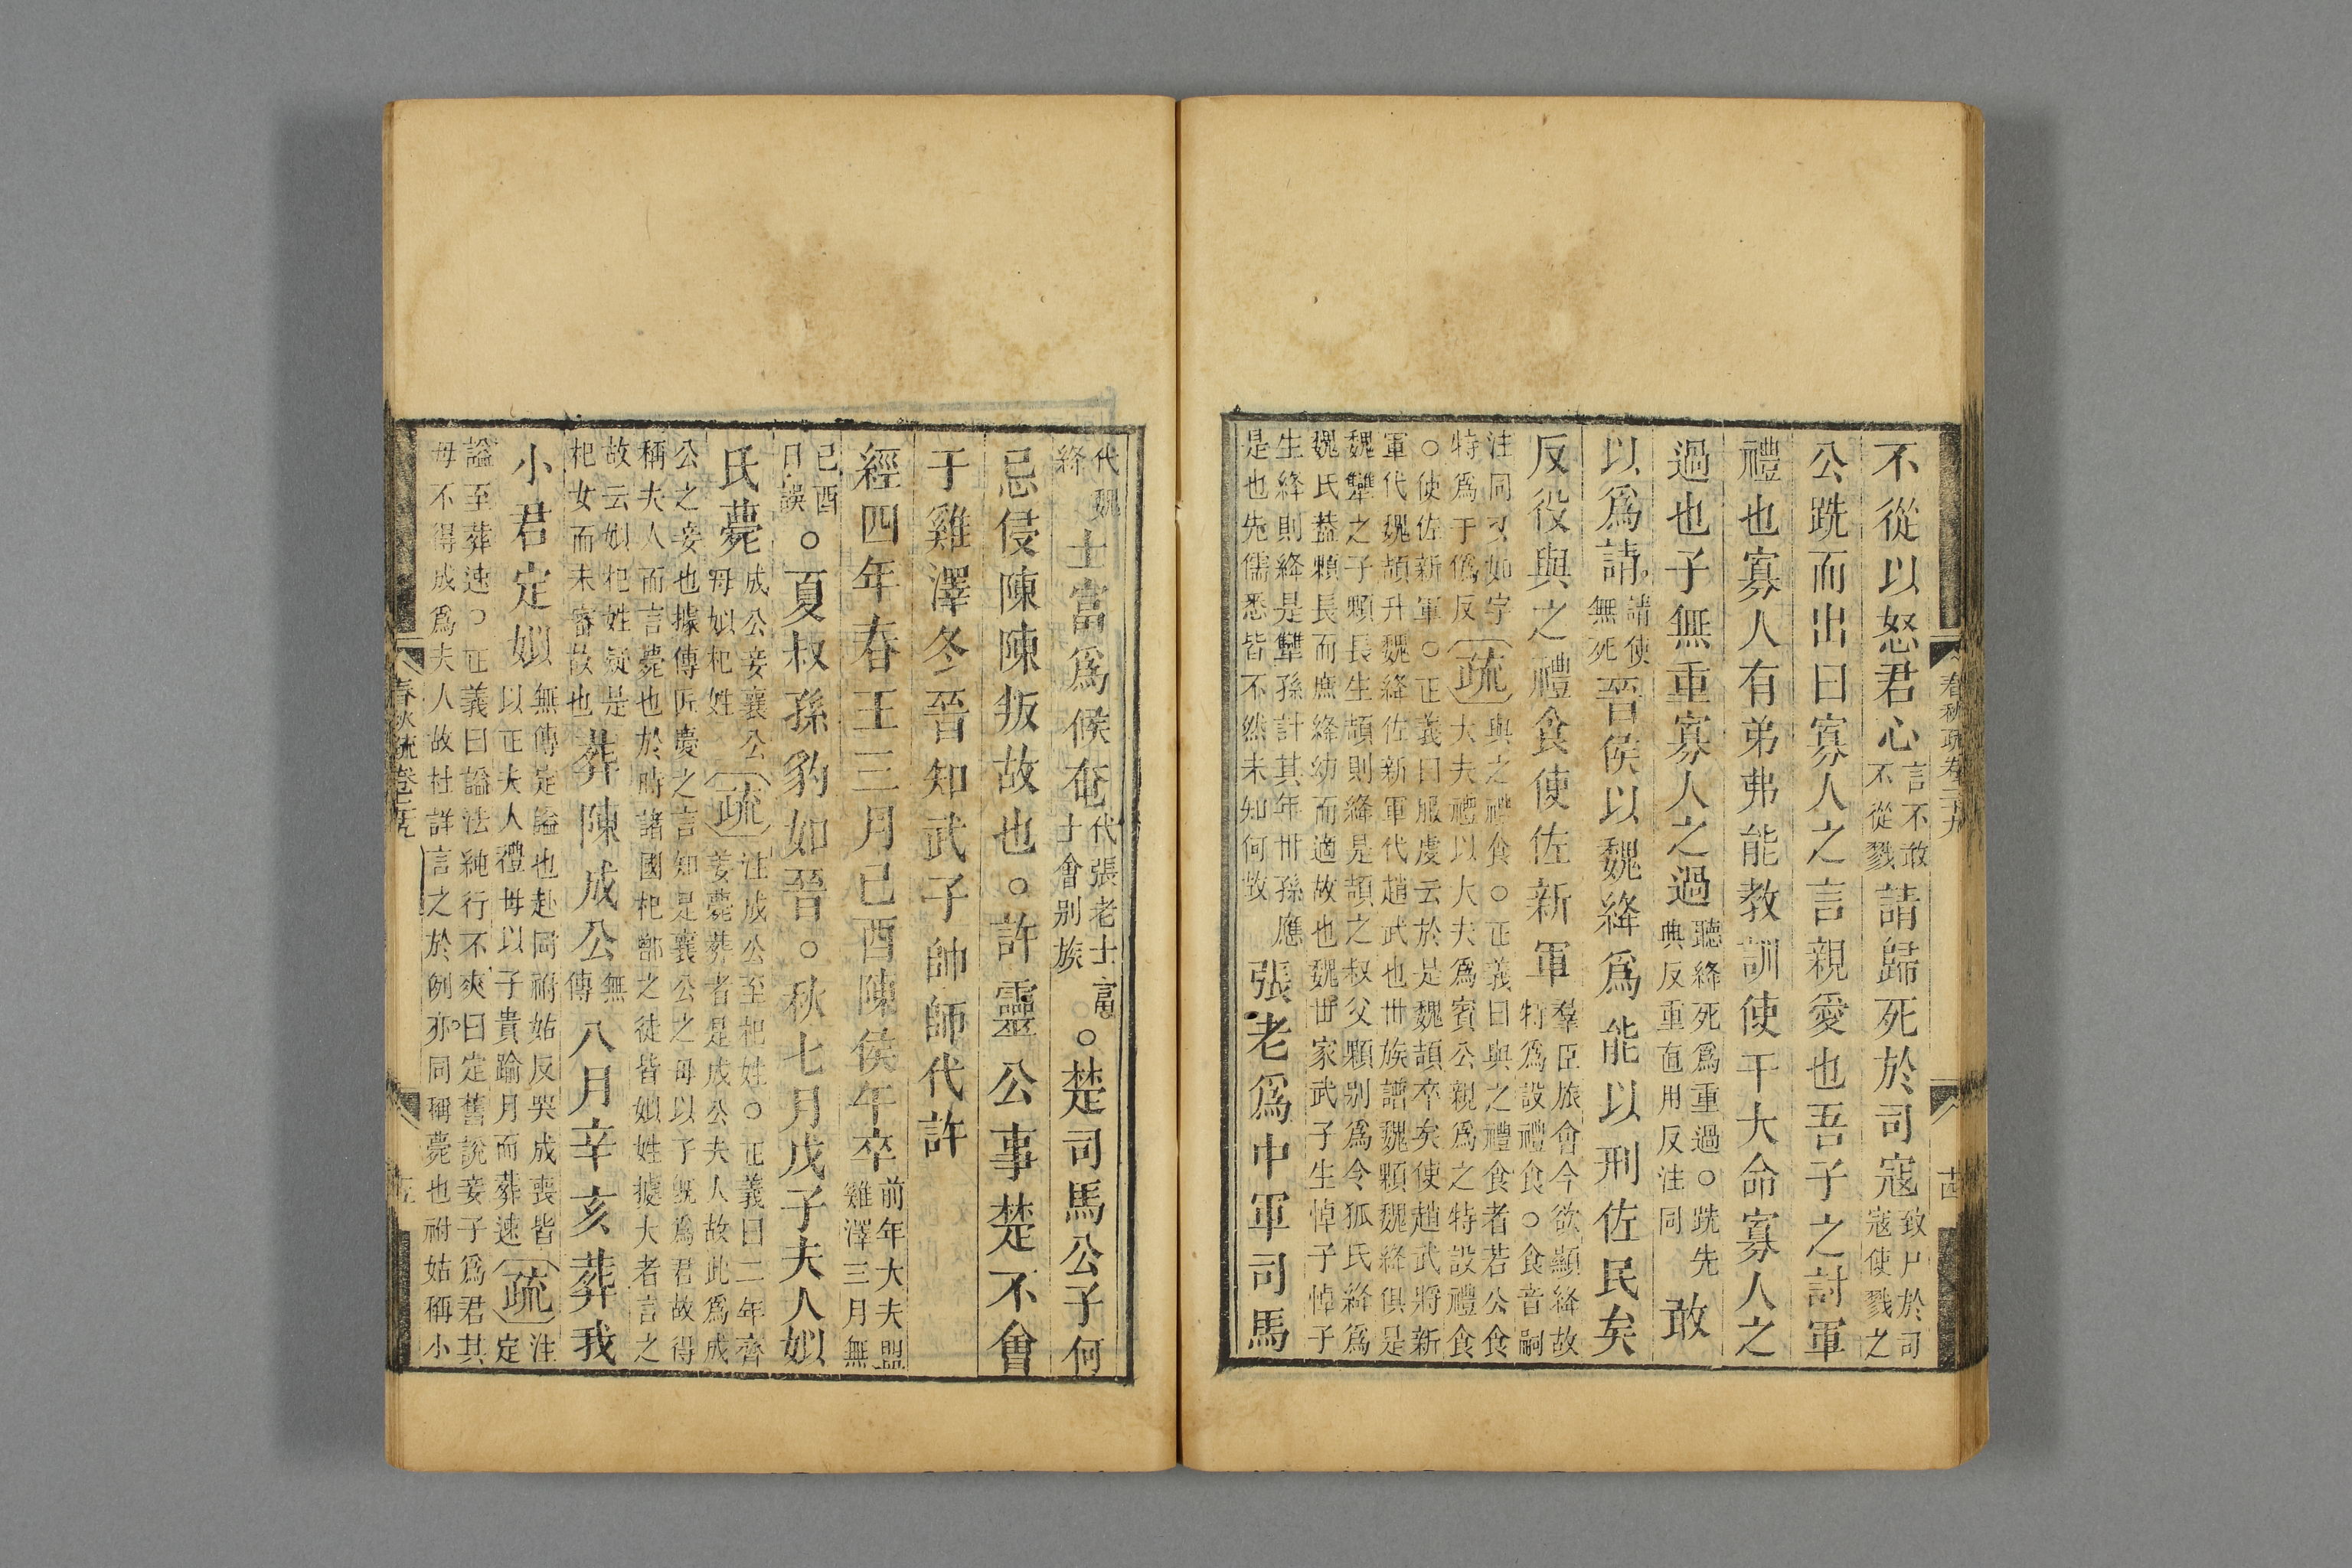 春秋疏卷二十九
不從以怒君心言不敢不從戮請歸死於司寇致尸於司寇使戮之
公跣而出曰寡人之言親愛也吾子之討軍
禮也寡人有弟弗能教訓使干大命寡人之
過也子無重寡人之過聽絳死爲重過○跣先典反重直用反注同敢
以爲請請使無死晉侯以魏絳爲能以刑佐民矣
反役與之禮食使佐新軍羣臣旅會今欲顯絳故特爲設禮食○食音嗣
注同又如字特爲于僞反疏與之禮食○正義曰與之禮食者若公食大夫禮以大夫爲賓公親爲之特設禮食
○使佐新軍○正義曰服虔云於是魏頡卒矣使趙武將新軍代魏頡升魏絳佐新軍代趙武也世族譜魏顆魏絳俱是
魏犫之子顆長生頡則絳是頡之叔父顆别爲令狐氏絳爲魏氏蓋顆長而庶絳幼而適故也魏世家武子生悼子悼子
生絳則絳是犫孫計其年世孫應是也先儒悉皆不然未知何故張老爲中軍司馬
代魏絳士富爲候奄代張老士富士會别族○楚司馬公子何
忌侵陳陳叛故也○許靈公事楚不會
于雞澤冬晉知武子帥師代許
經四年春王三月己酉陳侯午卒前年大夫盟雞澤三月無
己酉日誤○夏叔孫豹如晉○秋七月戊子夫人姒
氏薨成公妾襄公母姒杞姓疏注成公至杞姓○正義曰二年齊姜薨葬者是成公夫人故此爲成
公之妾也據傳匠慶之言知是襄公之母以子既爲君故得稱夫人而言薨也於時諸國杞鄫之徒皆姒姓據大者言之
故云姒杞姓疑是杞女而未審故也葬陳成公無傳八月辛亥葬我
小君定姒無傳定謚也赴同祔姑反哭成喪皆以正夫人禮母以子貴踰月而葬速疏注定
謚至葬速○正義曰謚法純行不爽曰定舊說妾子爲君其母不得成爲夫人故杜詳言之於例亦同稱薨也祔姑稱小
春秋疏卷二十九